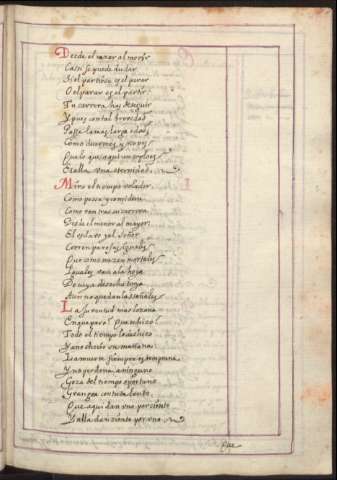 Desde el nazer al morir
Casi se puede dudar
Si el partir es el parar
O el parar es el partir
Tu carrera has de seguir
Y pues con tal brevedad
Passa la mas larga edad
Como duermes y no ves
Que lo que aqui un soplo es
Es alla una eternidad
Mira el tiempo volador
Como passa y considera
Como van tras su carrera
Desde el menor al mayor
El esclavo y el señor
Corren parejas iguales
Que como nazen mortales
Iguales van a la hoya
De cuya deshecha troya
Aun no quedan las señales
La juventud mas lozana
En que paro? Que se hizo?
Todo el tiempo lo deshizo
Y anochecio su mañana
La muerte siempre es temprana
Y no perdona a ninguno
Goza del tiempo oportuno
Grangea con tu talento
Que aqui dan uno por ciento
Y alla dan ciento por uno
Que